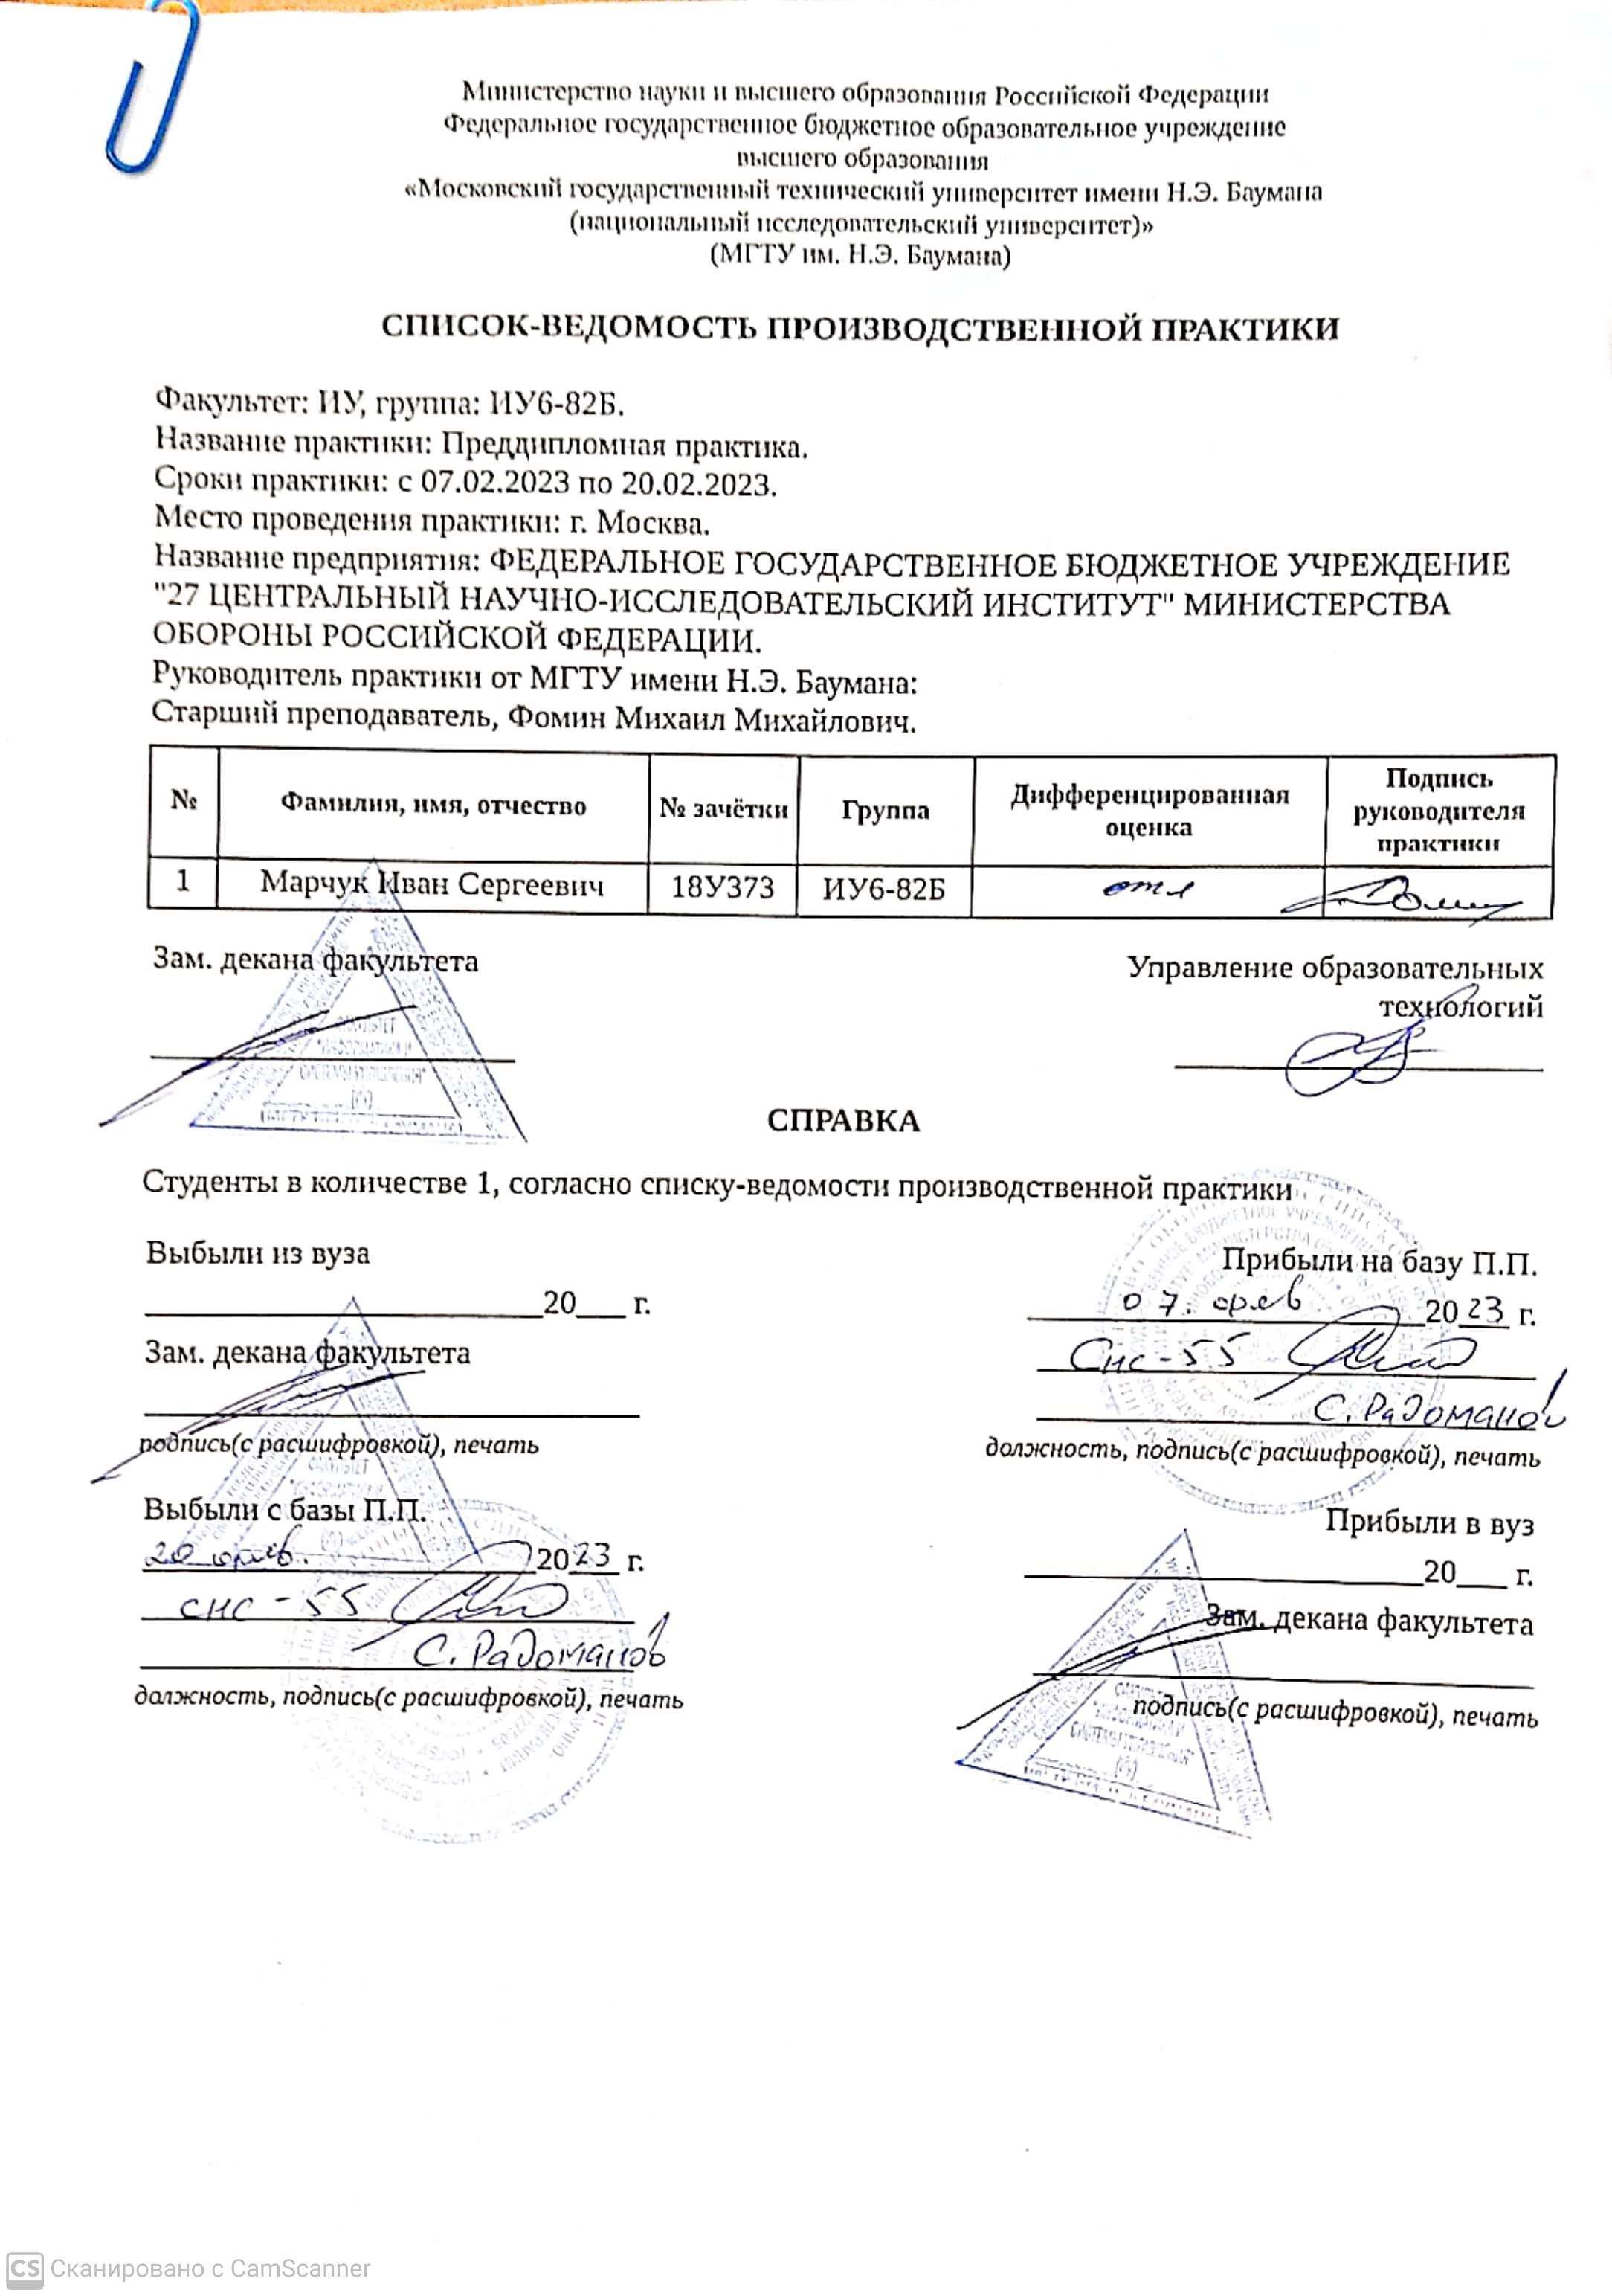 Министерство науки и высшего образования Российской Федерации
Федеральное государственное бюджетное образовательное учреждение
высшего образования
«Московский государственный технический университет имени Н.Э. Баумана
(национальный исследовательский университет)»
(МГТУ им. Н.Э. Баумана)
СПИСОК-ВЕДОМОСТЬ ПРОИЗВОДСТВЕННОЙ ПРАКТИКИ
Факультет: ИУ, группа: ИУ6-82Б.
Название практики: Преддипломная практика.
Сроки практики: с 07.02.2023 по 20.02.2023.
Место проведения практики: г. Москва.
Название предприятия: ФЕДЕРАЛЬНОЕ ГОСУДАРСТВЕННОЕ БЮДЖЕТНОЕ УЧРЕЖДЕНИЕ
"27 ЦЕНТРАЛЬНЫЙ НАУЧНО-ИССЛЕДОВАТЕЛЬСКИЙ ИНСТИТУТ" МИНИСТЕРСТВА
ОБОРОНЫ РОССИЙСКОЙ ФЕДЕРАЦИИ.
Руководитель практики от МГТУ имени Н.Э. Баумана:
Старший преподаватель, Фомин Михаил Михайлович.
№ Фамилия, имя, отчество № зачётки Группа Дифференцированная оценка Подпись руководителя практики
1 Марчук Иван Сергеевич 18У373 ИУ6-82Б отл
Зам. декана факультета
Управление образовательных
технологий
СПРАВКА
Студенты в количестве 1, согласно списку-ведомости производственной практики
Выбыли из вуза
20___ г.
Зам. декана факультета
подпись(с расшифровкой), печать
Прибыли на базу П.П.
07. фев 2023 г.
Снс-55
С. Радоманов
должность, подпись(с расшифровкой), печать
Выбыли с базы П.П.
20 фев. 2023 г.
снс-55
С. Радоманов
должность, подпись(с расшифровкой), печать
Прибыли в вуз
20___ г.
Зам. декана факультета
подпись(с расшифровкой), печать
CS Сканировано с CamScanner